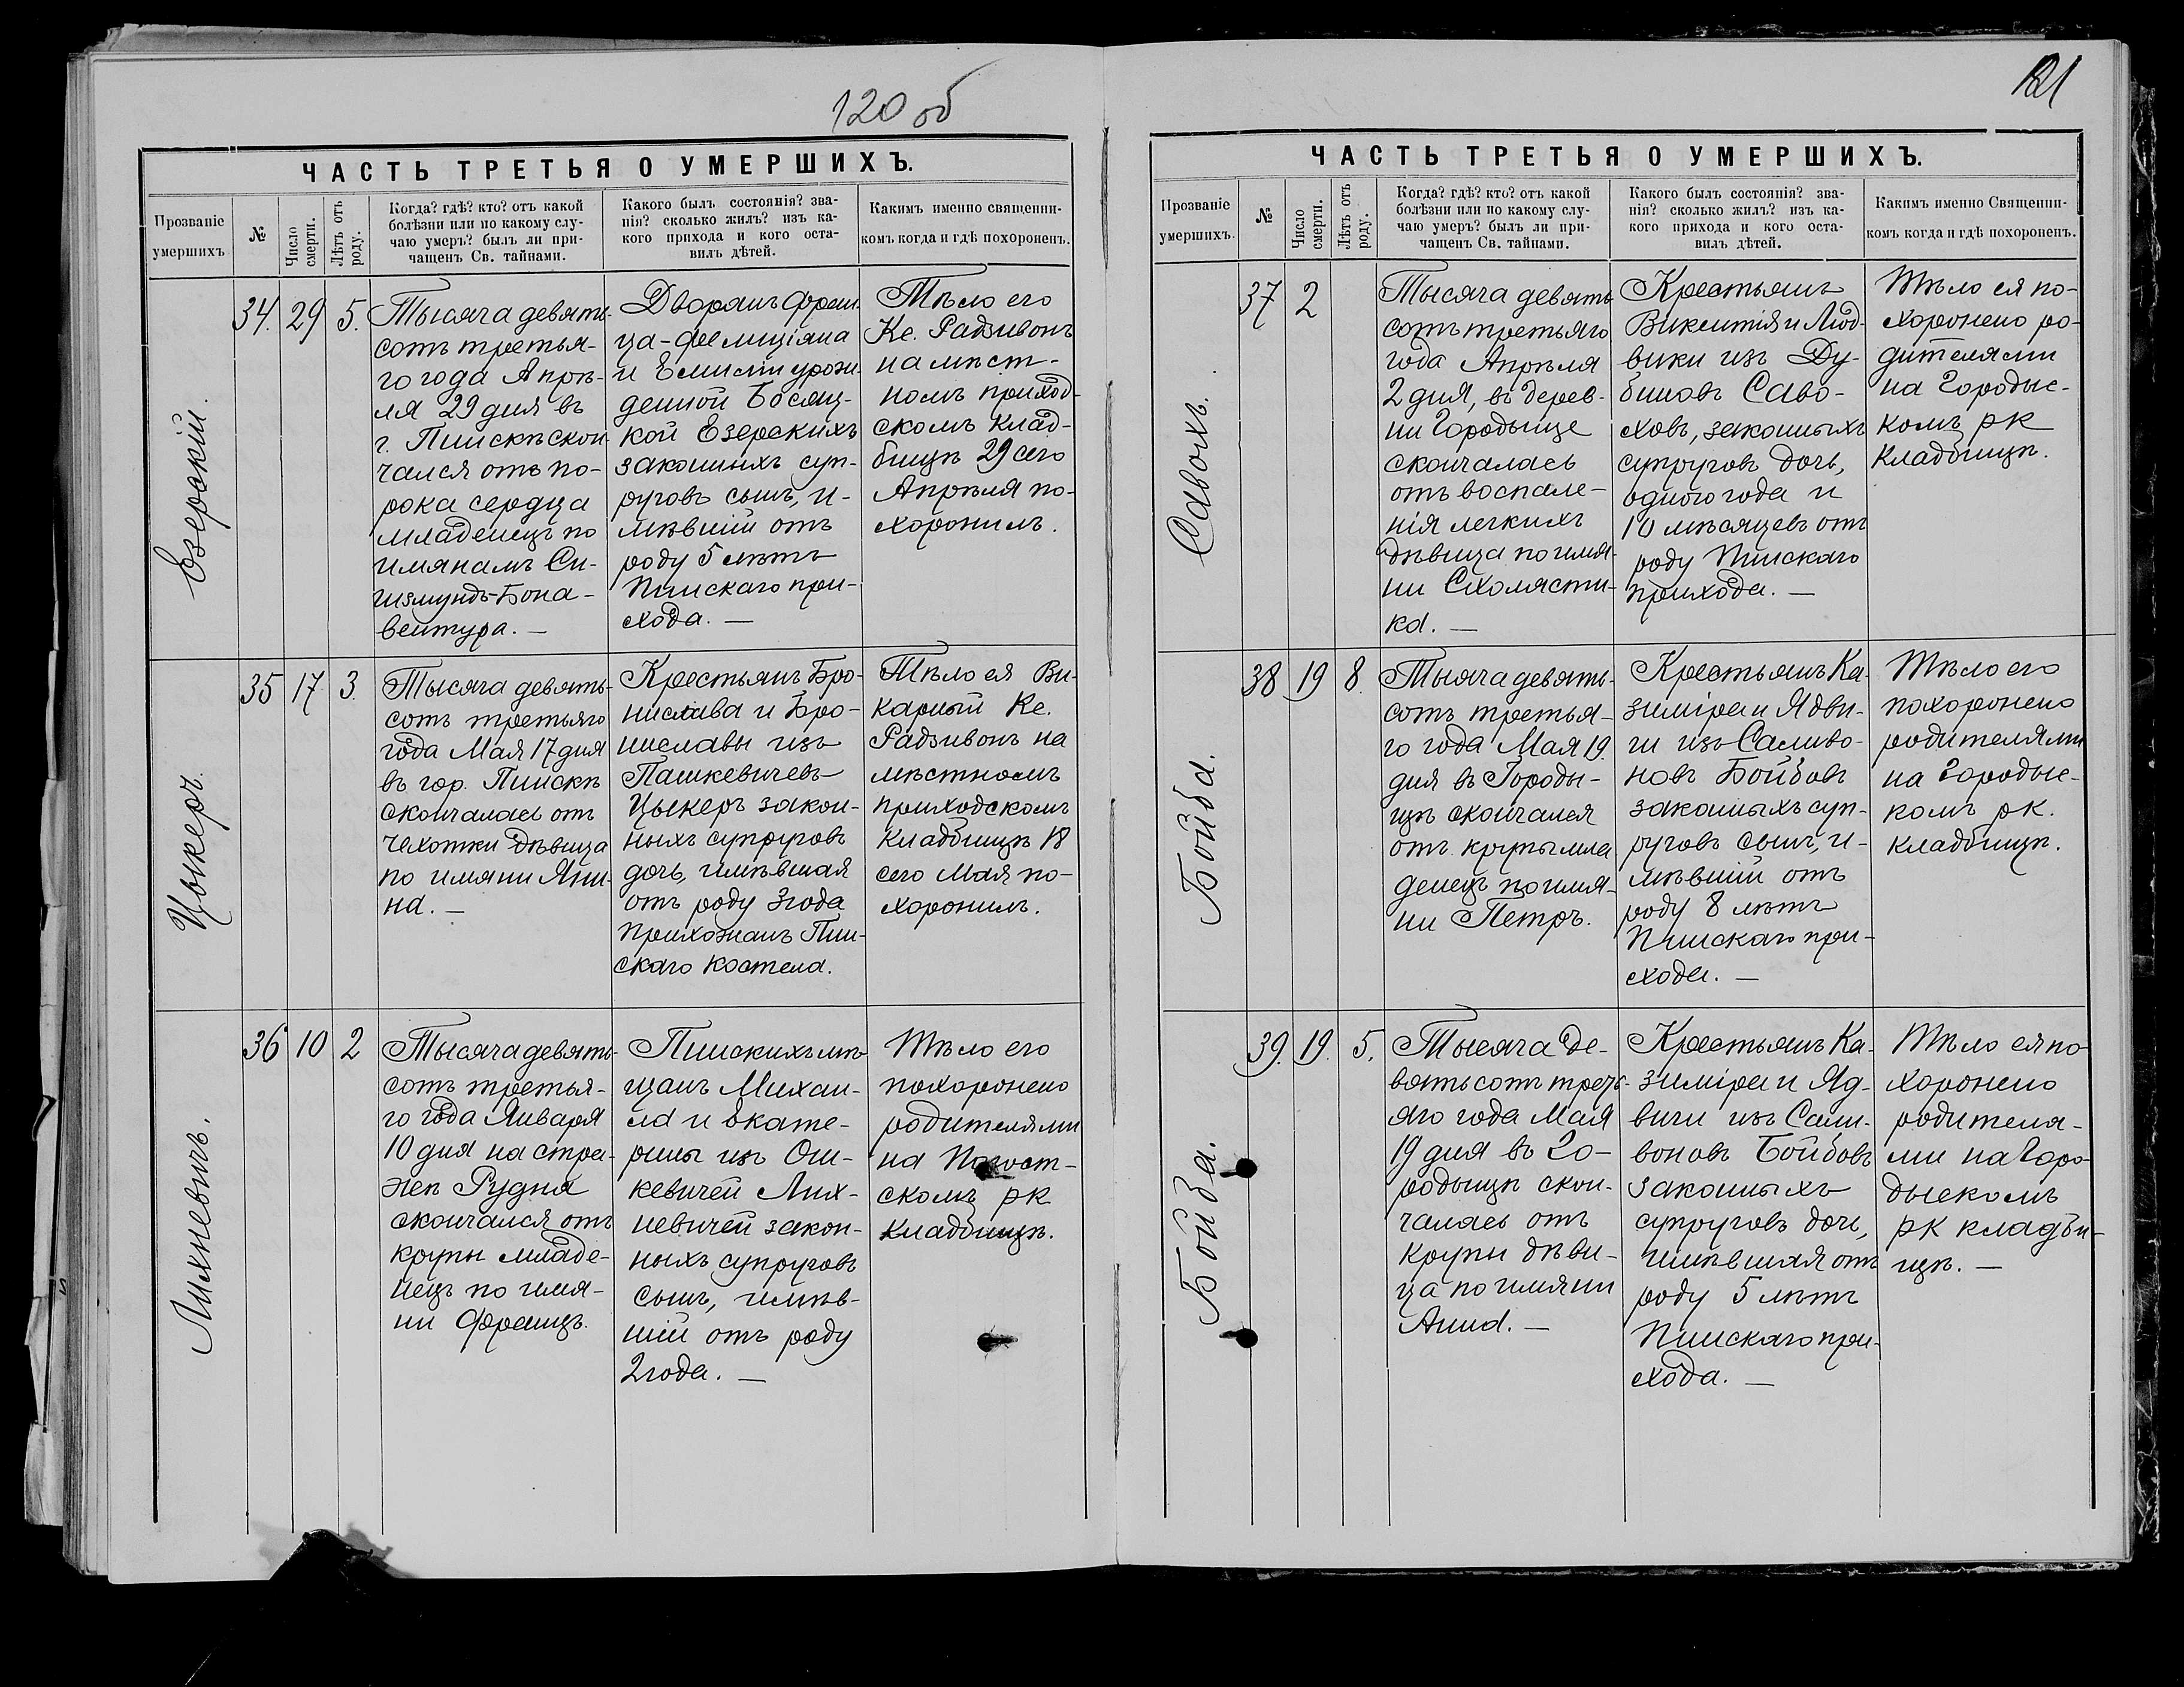 120 об
ЧАСТЬ ТРЕТЬЯ О УМЕРШИХЪ.
Прозваніе
умершихъ
№
Число
смерти.
Лѣтъ отъ
роду.
Когда? гдѣ? кто? отъ какой
болѣзни или по какому слу-
чаю умеръ? былъ ли при-
чащенъ Св. тайнами.
Какого былъ состоянія? зва-
нія? сколько жилъ? изъ ка-
кого прихода и кого оста-
вилъ дѣтей.
Какимъ именно священни-
комъ когда и гдѣ похороненъ.
Езерскій.
34.
29
5.
Тысяча девять-
сотъ третья-
го года Апрѣ-
ля 29 дня въ
г. Пинскѣ скон-
чался отъ по-
рока сердца
младенецъ по
имянамъ Си-
гизмундъ-Бона-
вентура. —
Дворянъ Фран-
ца-Фелиціяна
и Емиліи урож-
денной
кой Езерскихъ
законныхъ суп-
руговъ сынъ, и-
мѣвшій отъ
роду 5 лѣтъ
Пинскаго при-
хода. —
Тѣло его
Кс. Радзивонъ
на мѣст-
номъ приход-
скомъ клад-
бищѣ 29 сего
Апрѣля по-
хоронилъ.
Цыкеръ.
35
17
3.
Тысяча девять-
сотъ третьяго
года Мая 17 дня
въ гор. Пинскѣ
скончалась отъ
чехотки дѣвица
по имяни Яни-
на. —
Крестьянъ Бро-
нислава и Бро-
ниславы изъ
Пашкевичевъ
Цыкеръ закон-
ныхъ супруговъ
дочь, имѣвшая
отъ роду 3 года
прихожанъ Пин-
скаго костела.
Тѣло ея Ви-
карный Кс.
Радзивонъ на
мѣстномъ
приходскомъ
кладбищѣ 18
сего Мая по-
хоронилъ.
Лихневичъ.
36
10
2
Тысяча девять-
сотъ третья-
го года Января
10 дня на стра-
жѣ Рудня
скончался отъ
крупы младе-
нецъ по имя-
ни Францъ.
Пинскихъ мѣ-
щанъ Михаи-
ла и Екате-
рины изъ Ош-
кевичей Лих-
невичей закон-
ныхъ супруговъ
сынъ, имѣв-
шій отъ роду
2 года. —
Тѣло его
похоронено
родителями
на Погост-
скомъ рк
кладбищѣ.
121
ЧАСТЬ ТРЕТЬЯ О УМЕРШИХЪ.
Прозваніе
умершихъ.
№
Число
смерти.
Лѣтъ отъ
роду.
Когда? гдѣ? кто? отъ какой
болѣзни или по какому слу-
чаю умеръ? былъ ли при-
чащенъ Св. тайнами.
Какого былъ состоянія? зва-
нія? сколько жилъ? изъ ка-
кого прихода и кого оста-
вилъ дѣтей.
Какимъ именно Священни-
комъ когда и гдѣ похороненъ.
Савохъ.
37
2
Тысяча девять-
сотъ третьяго
года Апрѣля
2 дня, въ дерев-
ни Городыще
скончалась
отъ воспале-
нія легкихъ
дѣвица по имя-
ни Схоласти-
ка. —
Крестьянъ
Викентія и Люд-
вики изъ Ду-
биновъ Саво-
ховъ, законныхъ
супруговъ дочь,
одного года и
10 мѣсяцевъ отъ
роду Пинскаго
прихода. —
Тѣло ея по-
хоронено ро-
дителями
на Городыс-
комъ рк
кладбищѣ.
Бойба.
38
19
8.
Тысяча девять-
сотъ третья-
го года Мая 19
дня въ Городы-
щѣ скончался
отъ крупы мла
денецъ по имя-
ни Петръ.
Крестьянъ Ка-
зиміра и Ядви-
ги изъ Саливо-
новъ Бойбовъ
законныхъ суп-
руговъ сынъ, и-
мѣвшій отъ
роду 8 лѣтъ
Пинскаго при-
хода. —
Тѣло его
похоронено
родителями
на Городыс-
комъ рк.
кладбищѣ.
Бойба.
39.
19.
5.
Тысяча де-
вятьсотъ треть-
яго года Мая
19 дня въ Го-
родыщѣ скон-
чалась отъ
крупы дѣви-
ца по имяни
Анна. —
Крестьянъ Ка-
зиміра и Яд-
виги изъ Сали-
воновъ Бойбовъ
законныхъ
супруговъ дочь,
имѣвшая отъ
роду 5 лѣтъ
Пинскаго при-
хода. —
Тѣло ея по
хоронено
родителя-
ми на Горо
дыскомъ
рк кладби-
щѣ. —